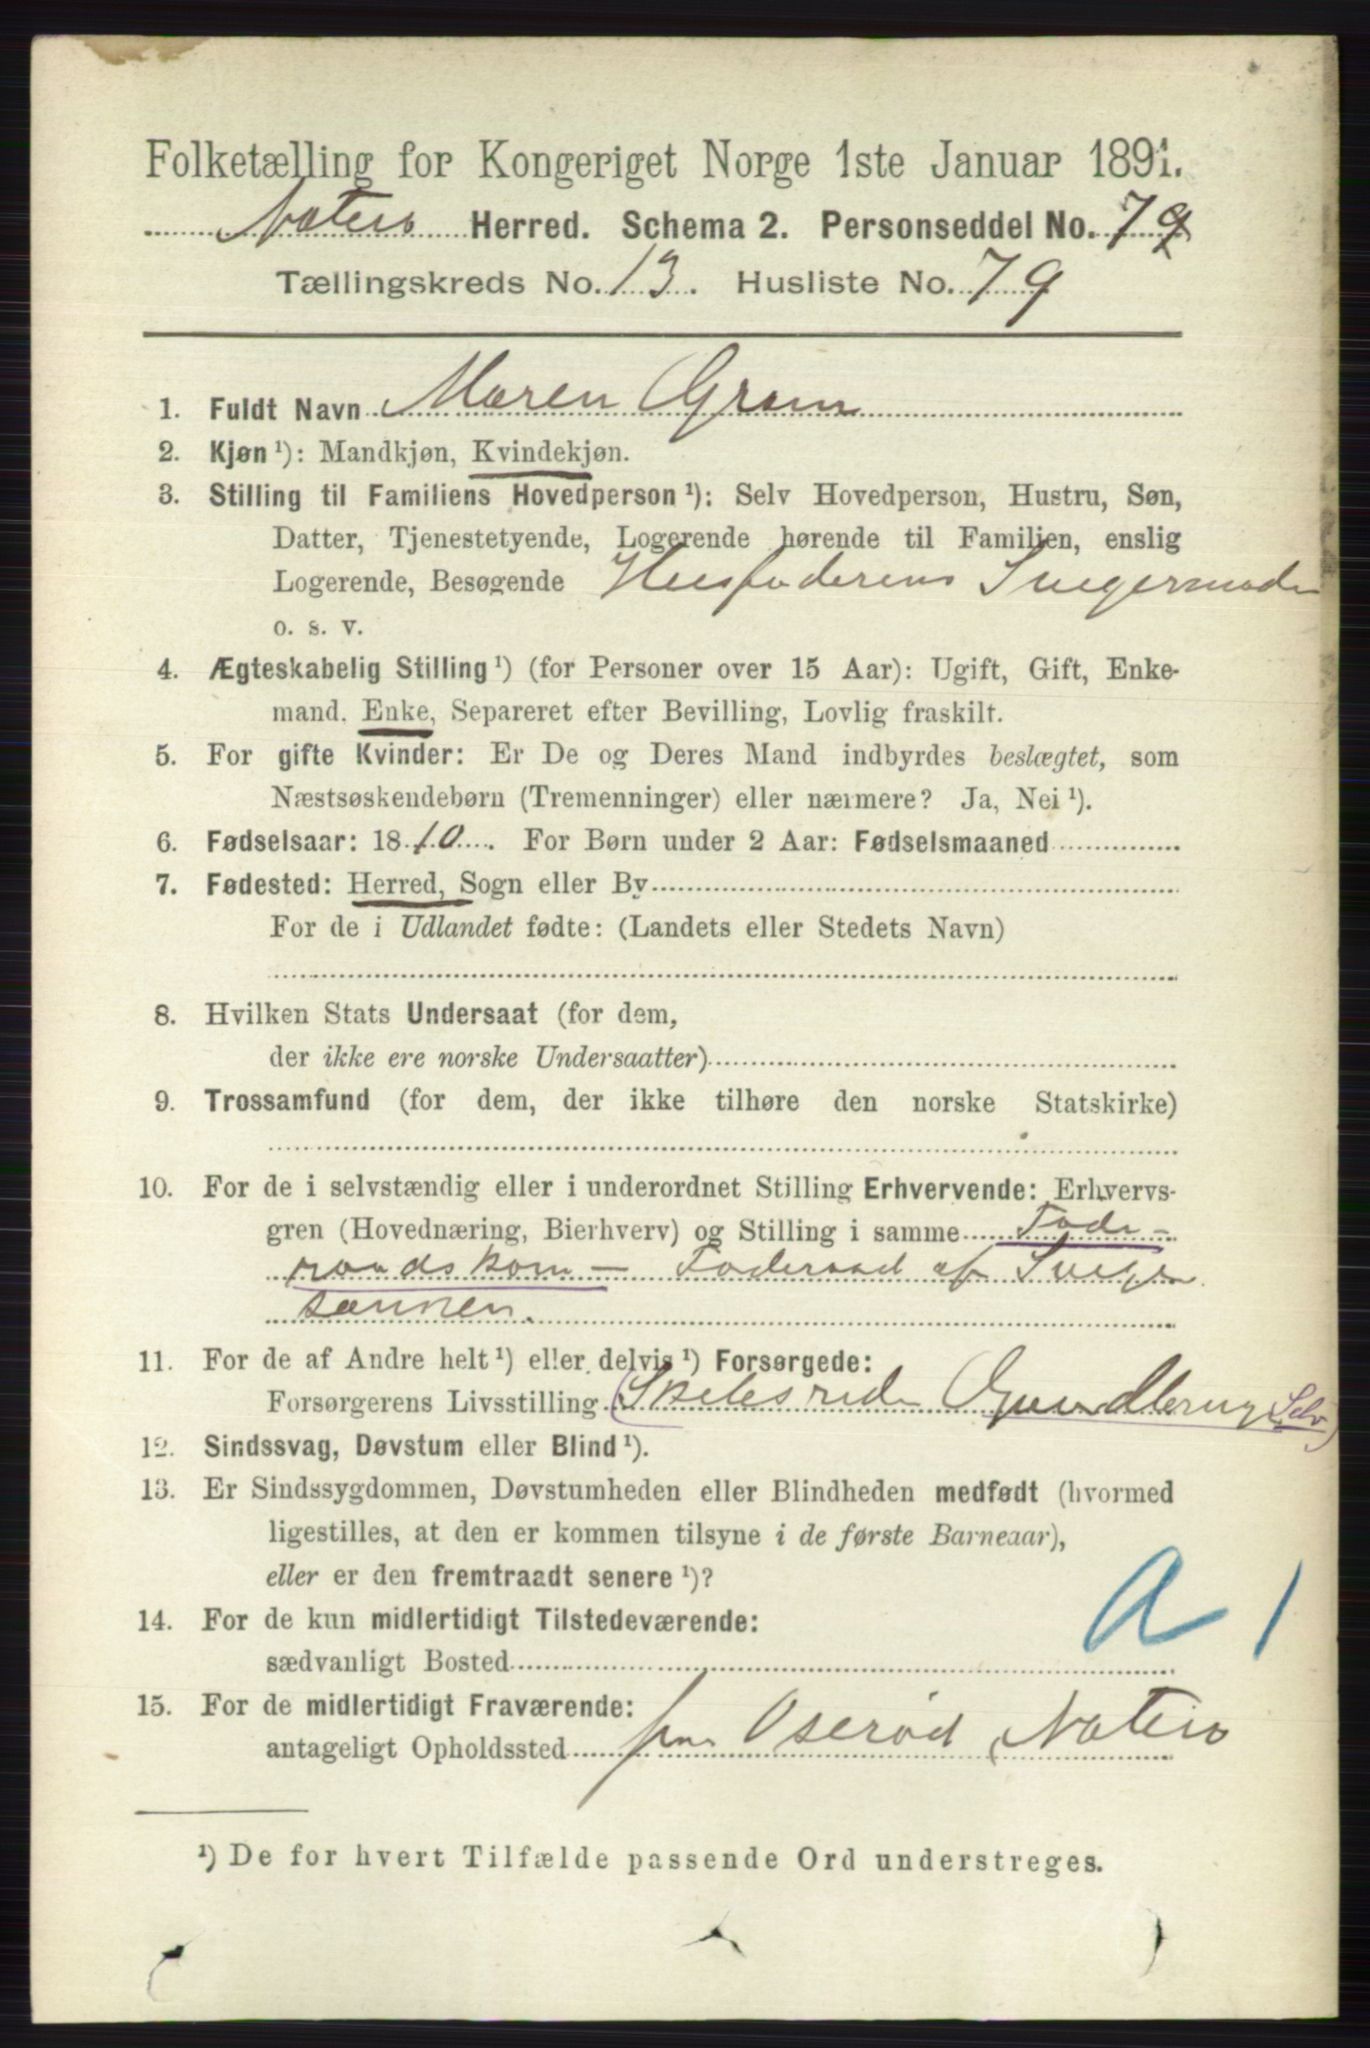 Folketælling for Kongeriget Norge 1ste Januar 1891.
Nøterø Herred. Schema 2. Personseddel No. 79
Tællingskreds No. 13. Husliste No. 79
1. Fuldt Navn Maren Gram
2. Kjøn ¹): Mandkjøn, Kvindekjøn.
3. Stilling til Familiens Hovedperson ¹): Selv Hovedperson, Hustru, Søn,
Datter, Tjenestetyende, Logerende hørende til Familien, enslig
Logerende, Besøgende Husfaderens Svigermoder
o. s. v.
4. Ægteskabelig Stilling ¹) (for Personer over 15 Aar): Ugift, Gift, Enke-
mand, Enke, Separeret efter Bevilling, Lovlig fraskilt.
5. For gifte Kvinder: Er De og Deres Mand indbyrdes beslægtet, som
Næstsøskendebørn (Tremenninger) eller nærmere? Ja, Nei ¹).
6. Fødselsaar: 1810. For Børn under 2 Aar: Fødselsmaaned
7. Fødested: Herred, Sogn eller By
For de i Udlandet fødte: (Landets eller Stedets Navn)
8. Hvilken Stats Undersaat (for dem,
der ikke ere norske Undersaatter)
9. Trossamfund (for dem, der ikke tilhøre den norske Statskirke)
10. For de i selvstændig eller i underordnet Stilling Erhvervende: Erhvervs-
gren (Hovednæring, Bierhverv) og Stilling i samme Føde-
raadskone - Føderaad af Svige
sønnen.
11. For de af Andre helt ¹) eller delvis ¹) Forsørgede:
Forsørgerens Livsstilling (Skibsreder Selv)
12. Sindssvag, Døvstum eller Blind ¹).
13. Er Sindssygdommen, Døvstumheden eller Blindheden medfødt (hvormed
ligestilles, at den er kommen tilsyne i de første Barneaar),
eller er den fremtraadt senere ¹)?
14. For de kun midlertidigt Tilstedeværende:
sædvanligt Bosted
a 1
15. For de midlertidigt Fraværende:
antageligt Opholdssted paa Oserød, Nøterø
¹) De for hvert Tilfælde passende Ord understreges.